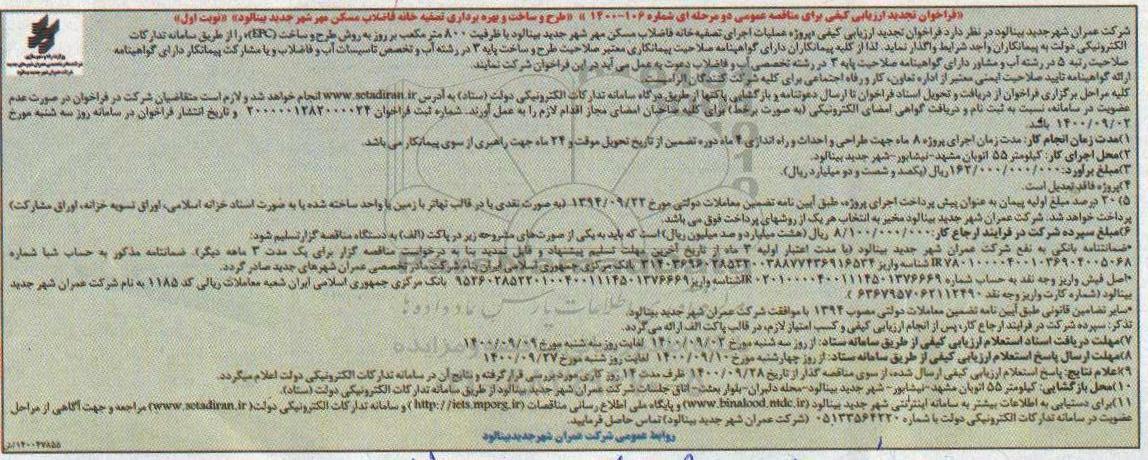 «فراخوان تجدید ارزیابی کیفی برای مناقصه عمومی دو مرحله ای شماره ۱۰۶-۱۴۰۰ » «طرح و ساخت و بهره برداری تصفیه خانه فاضلاب مسکن مهر شهر جدید بینالود» «نوبت اول»
شرکت عمران شهر جدید بینالود در نظر دارد فراخوان تجدید ارزیابی کیفی «پروژه عملیات اجرای تصفیه خانه فاضلاب مسکن مهر شهر جدید بینالود با ظرفیت ۸۰۰ متر مکعب بر روز به روش طرح و ساخت (EPC)» را از طریق سامانه تدارکات
الکترونیکی دولت به پیمانکاران واجد شرایط واگذار نماید. لذا از کلیه پیمانکاران دارای گواهینامه صلاحیت پیمانکاری معتبر صلاحیت طرح و ساخت پایه ۳ در رشته آب و تخصص تاسیسات آب و فاضلاب و یا مشارکت پیمانکار دارای گواهینامه
صلاحیت رتبه ۵ در رشته آب و مشاور دارای گواهینامه صلاحیت پایه ۳ در رشته تخصصی آب و فاضلاب دعوت به عمل می آید در این فراخوان شرکت نمایند.
ارائه گواهینامه تایید صلاحیت ایمنی معتبر از اداره تعاون، کار و رفاه اجتماعی برای کلیه شرکت کنندگان الزامی
کلیه مراحل برگزاری فراخوان از دریافت و تحویل اسناد فراخوان تا ارسال دعوتنامه و بازگشایی پاکتها از طریق درگاه سامانه تدارکات الکترونیکی دولت (ستاد) به آدرس www.setadiran.ir انجام خواهد شد و لازم است متقاضیان شرکت در فراخوان در صورت عدم
عضویت در سامانه، نسبت به ثبت نام و دریافت گواهی امضای الکترونیکی (به صورت برخط) برای کلیه صاحبان امضای مجاز اقدام لازم را به عمل آورند. شماره ثبت فراخوان ۲۰۰۰۰۰۱۲۸۲۰۰۰۰۲۴ و تاریخ انتشار فراخوان در سامانه روز سه شنبه مورخ
۱۴۰۰/۰۹/۰۲ باشد.
۱)مدت زمان انجام کار: مدت زمان اجرای پروژه ۸ ماه جهت طراحی و احداث و راه اندازی ۴ ماه دوره تضمین از تاریخ تحویل موقت و ۲۴ ماه جهت راهبری از سوی پیمانکار می باشد.
۲)محل اجرای کار: کیلومتر ۵۵ اتوبان مشهد-نیشابور-شهر جدید بینالود.
۳)مبلغ برآورد: ۱۶۲/۰۰۰/۰۰۰/۰۰۰ ریال (یکصد و شصت و دو میلیارد ریال).
۴)پروژه فاقد تعدیل است.
۵) ۲۰ درصد مبلغ اولیه پیمان به عنوان پیش پرداخت اجرای پروژه، طبق آیین نامه تضمین معاملات دولتی مورخ ۱۳۹۴/۰۹/۲۲ (به صورت نقدی یا در قالب تهاتر با زمین یا واحد ساخته شده یا به صورت اسناد خزانه اسلامی، اوراق تسویه خزانه، اوراق مشارکت)
پرداخت خواهد شد. شرکت عمران شهر جدید بینالود مخیر به انتخاب هر یک از روشهای پرداخت فوق می باشد.
۶)مبلغ سپرده شرکت در فرایند ارجاع کار: ۸/۱۰۰/۰۰۰/۰۰۰ ریال (هشت میلیارد و صد میلیون ریال) است که باید به یکی از صورت‌های مشروحه زیر در پاکت (الف) به دستگاه مناقصه گزار تسلیم شود:
*ضمانتنامه بانکی به نفع شرکت عمران شهر جدید بینالود (با مدت اعتبار اولیه ۳ ماه از تاریخ آخرین مهلت تسلیم پیشنهاد و قابل تمدید بنا به درخواست مناقصه گزار برای یک مدت ۳ ماهه دیگر). ضمانتنامه مذکور به حساب شبا شماره
بانک مرکزی جمهوری اسلامی ایران بنام شرکت مادر تخصصی عمران شهرهای جدید صادر گردد.
*اصل فیش واریز وجه نقد به حساب شماره بانک مرکزی جمهوری اسلامی ایران شعبه معاملات ریالی کد ۱۱۸۵ به نام شرکت عمران شهر جدید
بینالود (شماره کارت واریز وجه نقد ۶۳۶۷۹۵۷۰۶۲۱۱۲۴۹۰ ).
*سایر تضامین قانونی طبق آیین نامه تضمین معاملات دولتی مصوب ۱۳۹۴ با موافقت شرکت عمران شهر جدید بینالود.
تذکر: سپرده شرکت در فرایند ارجاع کار، پس از انجام ارزیابی کیفی و کسب امتیاز لازم، در قالب پاکت الف ارائه می گردد.
۷)مهلت دریافت اسناد استعلام ارزیابی کیفی از طریق سامانه ستاد: از روز سه شنبه مورخ ۱۴۰۰/۰۹/۰۲ لغایت روز سه شنبه مورخ ۱۴۰۰/۰۹/۰۹
۸)مهلت ارسال پاسخ استعلام ارزیابی کیفی از طریق سامانه ستاد: از روز چهارشنبه مورخ ۱۴۰۰/۰۹/۱۰ لغایت روز شنبه مورخ ۱۴۰۰/۰۹/۲۷
۹)اعلام نتایج: پاسخ استعلام ارزیابی کیفی ارسال شده، از سوی مناقصه گذار از تاریخ ۱۴۰۰/۰۹/۲۸ ظرف مدت ۱۴ روز کاری مورد بررسی قرار گرفته و نتایج آن در سامانه تدارکات الکترونیکی دولت اعلام میگردد.
۱۰)محل بازگشایی: کیلومتر ۵۵ اتوبان مشهد-نیشابور- شهر جدید بینالود-محله دلیران-بلوار بعثت- اتاق جلسات شرکت عمران شهر جدید بینالود از طریق سامانه تدارکات الکترونیکی دولت (ستاد).
۱۱)برای دستیابی به اطلاعات بیشتر به سامانه اینترنتی شهر جدید بینالود (www.binalood.ntdc.ir) و پایگاه ملی اطلاع رسانی مناقصات (http://iets.mporg.ir) و سامانه تدارکات الکترونیکی دولت (www.setadiran.ir) مراجعه و جهت آگاهی از مراحل
عضویت در سامانه تدارکات الکترونیکی دولت با شماره ۰۵۱۳۳۵۶۴۲۲۰ (شرکت عمران شهر جدید بینالود) تماس حاصل فرمایید.
روابط عمومی شرکت عمران شهر جدید بینالود